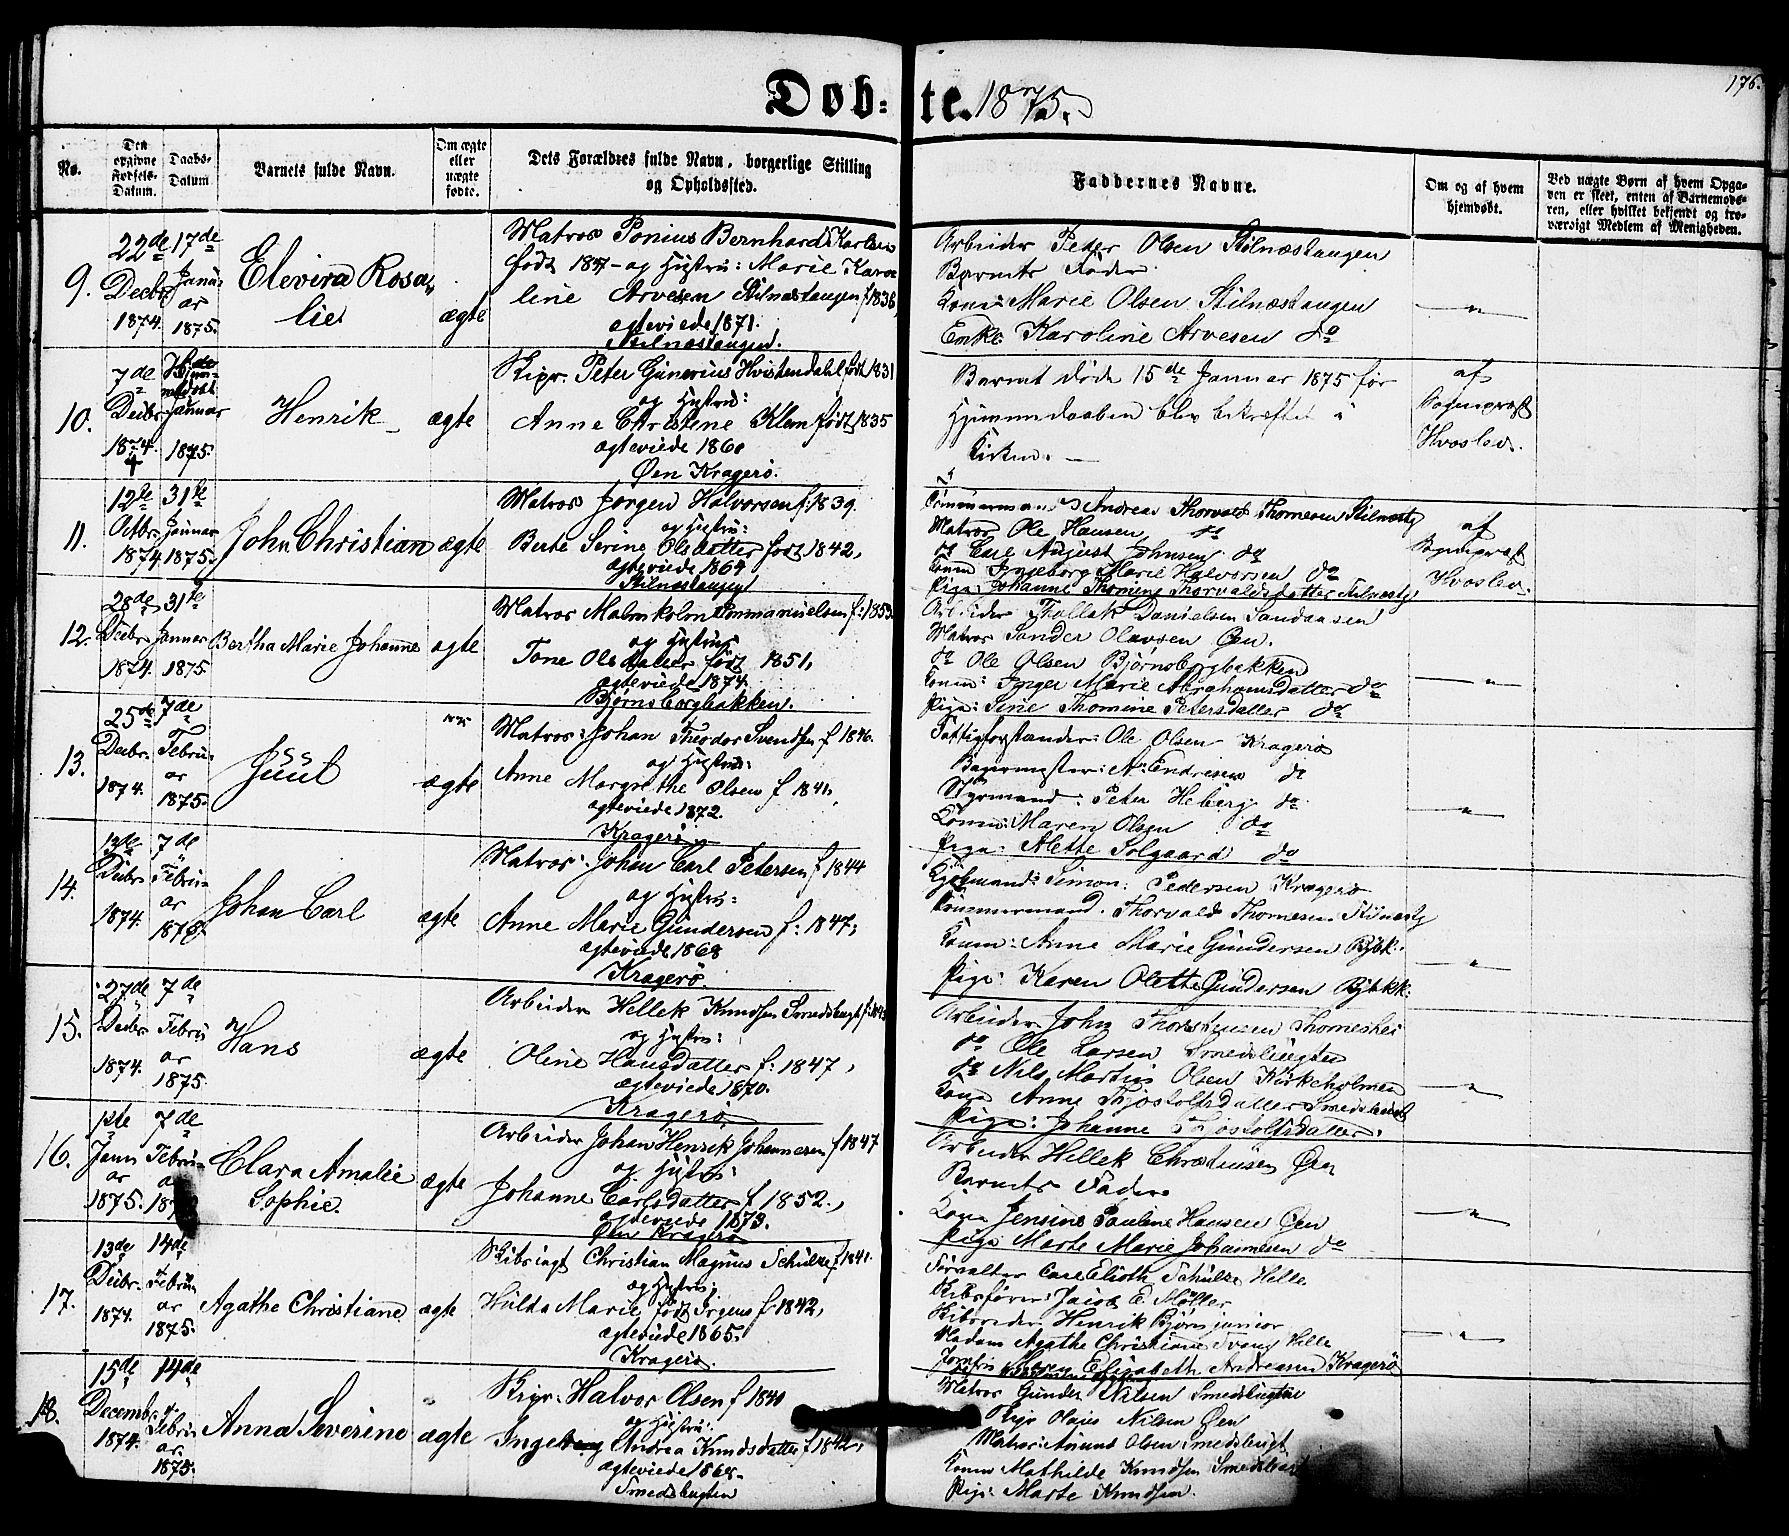 176.
Døb-te. 1875.
No.
Den opgivne Fødsels-Datum.
Daabs-Datum.
Barnets fulde Navn.
Om ægte eller uægte fødte.
Dets Forældres fulde Navn, borgerlige Stilling og Opholdssted.
Faddernes Navne.
Om og af hvem hjemdøbt.
Ved uægte Børn af hvem Opga-
ven er skeet, enten af Barnemode-
ren, eller hvilket bekjendt og tro-
værdigt Medlem af Menigheden.
9.
22de Decbr. 1874.
17de Januar 1875.
Elevira Rosalie
ægte
Matros Ponius Bernhard Karlsen
født 1837 og Hustru: Marie Karo-
line Arvesen Stilnæstangen f 1836,
ægteviede 1871.
Stilnæstangen.
Arbeider Peder Olsen Stilnæstangen
Barnets Fader
Kone: Marie Olsen Stilnæstangen
Enke: Karoline Arvesen do
10.
7de Decbr. 1874.
Januar 1875.
Henrik
ægte
Skipr. Peter Gunerius Hvistendahl født 1831
og Hustru:
Anne Christene Klem født 1835
ægteviede 1860
Øen Kragerø.
Barnet døde 15de Januar 1875 før
Hjemmedaaben blev bekræftet i
Kirken.
af Sogneprest Hvoslev.
11.
12te Octbr. 1874
31te Januar 1875.
John Christian
ægte
Matros Jørgen Halvorsen f: 1839.
og Hustru:
Berte Serine Olsdatter født 1842,
ægteviede 1864
Stilnæstangen
Tømmermand Andreas Thorvald Thomesen Stilnæstg
Matros Ole Hansen do
do Carl August Johnsen do
Kone Ingeborg Marie Halvorsen do
Pige: Johanne Thomine Thorvaldsdatter Stilnæstg.
af Sogneprest Hvoslev.
12.
28de Decbr. 1874.
31te Januar 1875.
Bertha Marie Johanne
ægte
Matros Malmkolm Emmanuelsen f: 1853
og Hustru
Tone Olsdatter født 1851,
ægteviede 1874.
Bjørnsborgbakken.
Arbeider Thollak Danielsen Sandaasen
Matros Sander Olavsen Øen.
do Ole Olsen Bjørnsborgbakken
Kone: Inger Marie Abrahamsdatter do
Pige: Sine Thomine Petersdatter do
13.
25de Decbr. 1874.
7de Februar 1875.
Juul
ægte
Matros: Johan Theodor Svendsen f 1846.
og Hustru:
Anne Margrethe Olsen f 1841,
ægteviede 1872.
Kragerø
Fattigforstander: Ole Olsen Kragerø
Bagermester: A. Endresen do
Styrmand: Peter Heberg do.
Kone: Maren Olsen do
Pige: Alette Solgaard do
14.
13de Decbr. 1874.
7de Februar 1875.
Johan Carl
ægte
Matros: Johan Carl Petersen f 1844
og Hustru:
Anne Marie Gundersen f: 1847,
ægteviede 1868
Kragerø.
Kjøbmand: Simon Pedersen Kragerø
Tømmermand. Thorvald Thomesen Stilnæstg
Kone: Anne Marie Gundersen Bjbk.
Pige: Karen Olette Gundersen Bjbkk.
15.
27de Decbr. 1874.
7de Februar 1875.
Hans
ægte
Arbeider Hellek Knudsen Smedsbugt
og Hustru:
Oline Hansdatter f: 1847,
ægteviede 1870.
Kragerø.
Arbeider John Thorstensen
do Ole Larsen Smedsbugten
do Nils Martin Olsen Kirkeholmen
Kone Anne Thjostolfsdatter Smedsbugt
Pige: Johanne Thjostolfsdatter.
16.
1ste Januar 1875.
7de Februar
Clara Amalie Sophie.
ægte
Arbeider Johan Henrik Johannesen f 1847
og Hustru:
Johanne Carlsdatter f 1852.,
ægteviede 1873.
Øen Kragerø
Arbeider Hellek Christensen Øen
Barnets Fader.
Kone Jensine Pauline Hansen Øen
Pige Marte Marie Johannesen do
17.
13de Decbr. 1874.
14de Februar 1875.
Agathe Christiane
ægte
Christian Magnus Schulze f 1841.
og Hustru:
Hulda Marie født Irgens f. 1842,
ægteviede 1865.
Kragerø.
Forvalter Carl Elioth Schulze Helle
Skibsfører: Jacob E. Møller.
Skibsreder Henrik Bjørn junior
Madam Agathe Christiane Tvang Helle
Jomfru Maren Elisabeth Andreasen Kragerø
18.
15de Decembr. 1874.
14de Februar 1875.
Anna Severine
ægte
Skipr. Halvor Olsen f 1840
og Hustru:
Ingeborg Andrea Knudsdatter f 1842,
ægteviede 1868-
Smedsbugten
Matros Gunder Nilsen Smedsbugten
Skipr Olaus Nilsen Øen
Matros: Amund Olsen Smedsbugt
Kone Mathilde Knudsen Smedsbugt
Pige: Marte Knudsen.